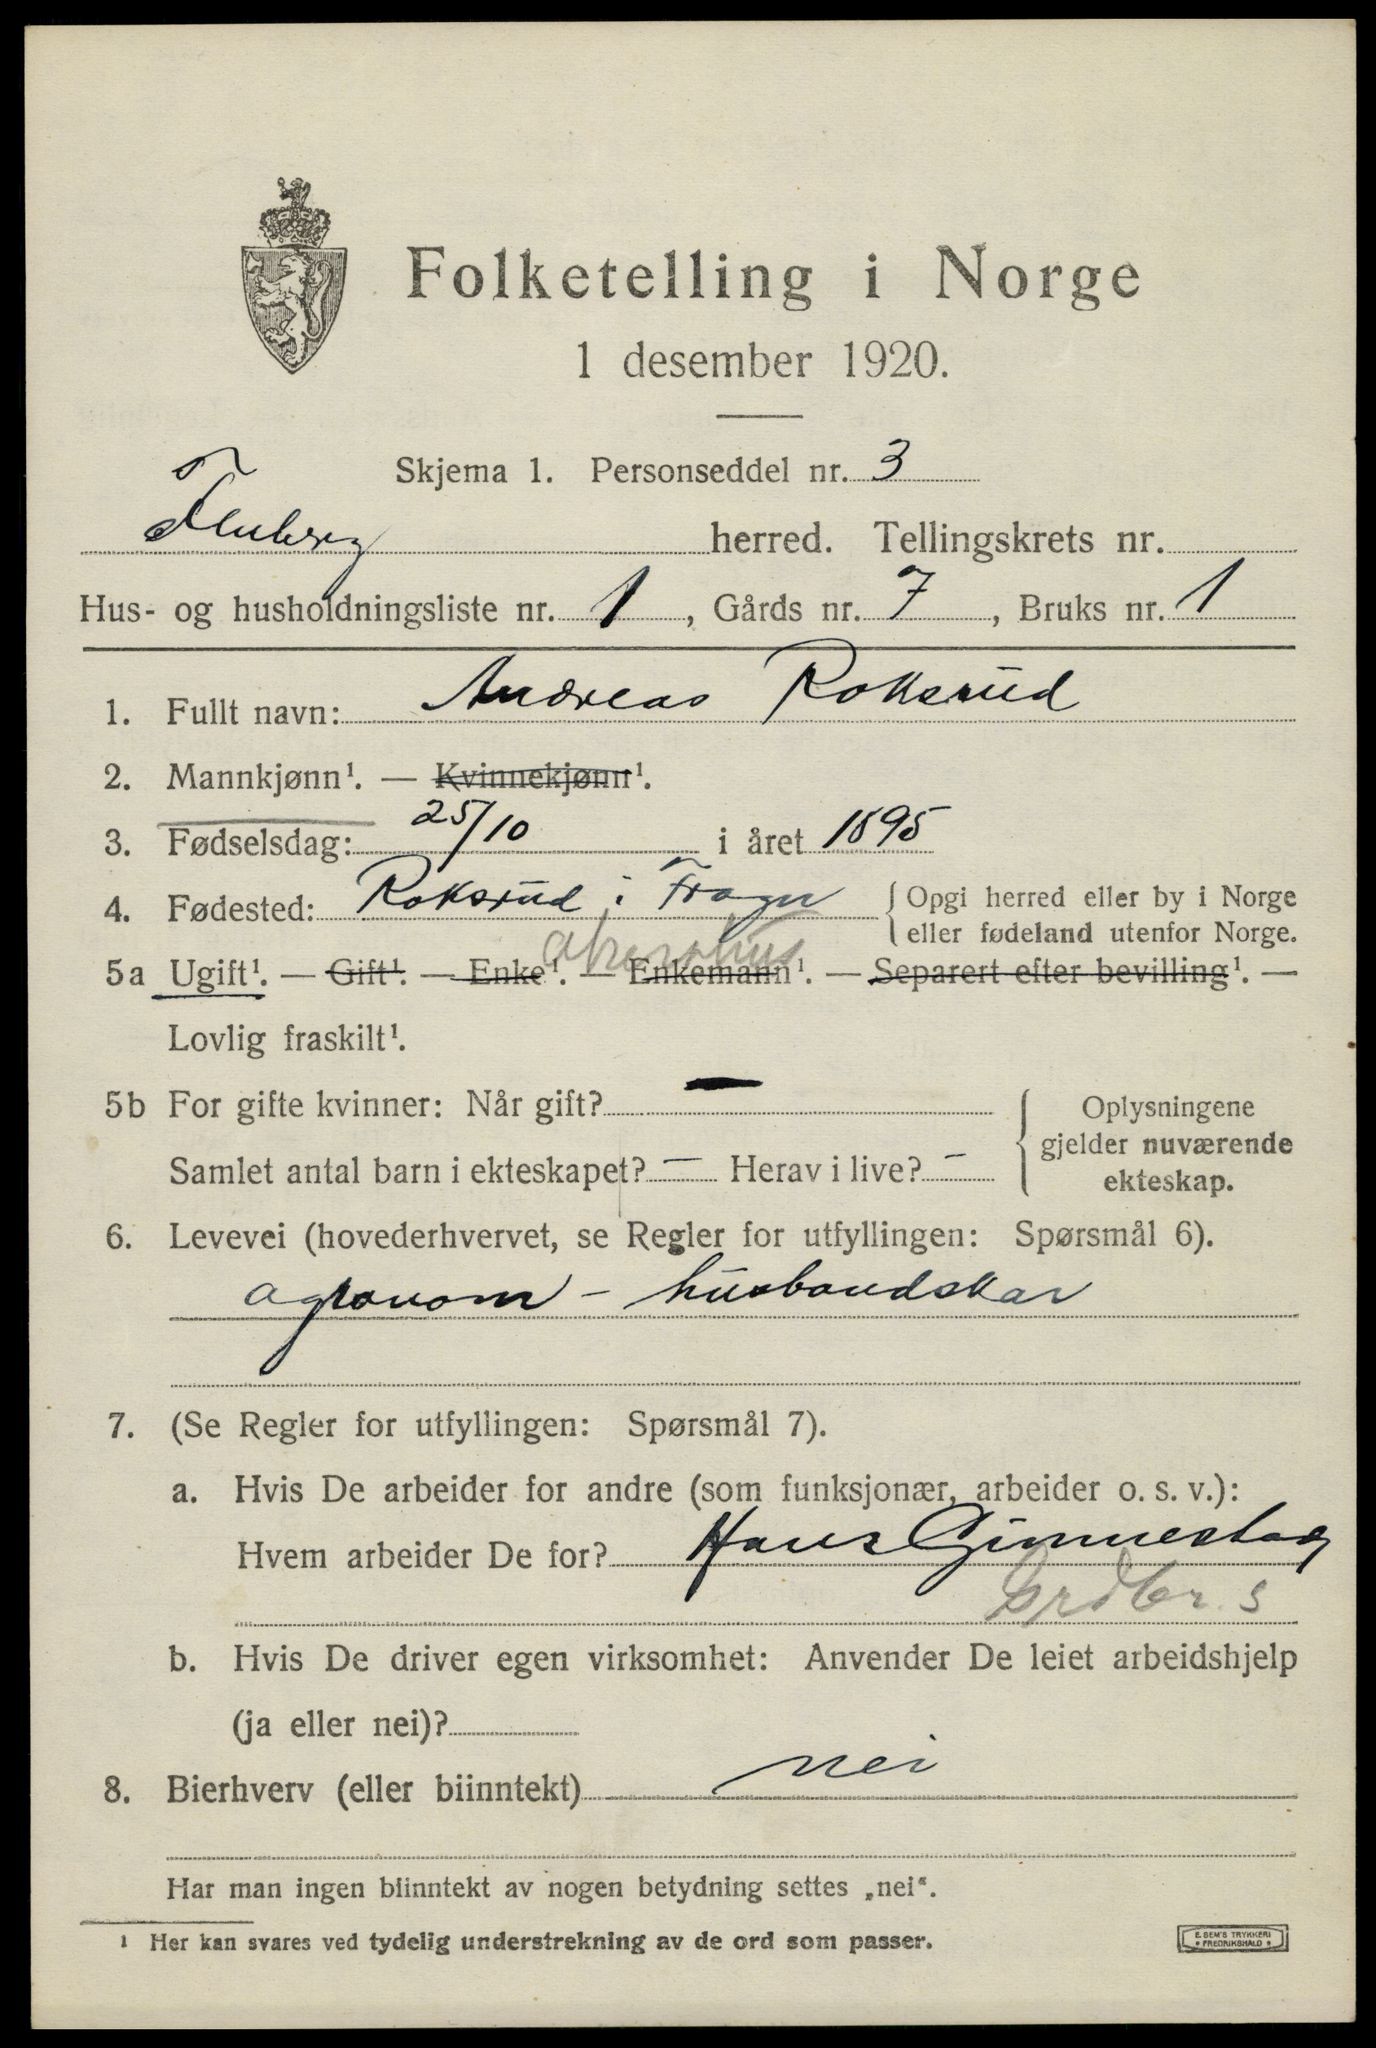 Folketelling i Norge
1 desember 1920.
Skjema 1. Personseddel nr. 3
Fluberg herred. Tellingskrets nr.
Hus- og husholdningsliste nr. 1, Gårds nr. 7, Bruks nr. 1
1. Fullt navn: Andreas Roksrud
2. Mannkjønn¹. — Kvinnekjønn¹.
3. Fødselsdag: 25/10 i året 1895
4. Fødested: Roksrud i Frogn { Opgi herred eller by i Norge
eller fødeland utenfor Norge.
Akershus
5a Ugift¹. — Gift¹. — Enke¹. — Enkemann¹. — Separert efter bevilling¹. —
Lovlig fraskilt¹.
5b For gifte kvinner: Når gift? — { Oplysningene
gjelder nuværende
Samlet antal barn i ekteskapet? — Herav i live? —
ekteskap.
6. Levevei (hovederhvervet, se Regler for utfyllingen: Spørsmål 6).
agronom - husbondskar
7. (Se Regler for utfyllingen: Spørsmål 7).
a. Hvis De arbeider for andre (som funksjonær, arbeider o. s. v.):
Hvem arbeider De for? Hans Ginnestad
Grdbr. s
b. Hvis De driver egen virksomhet: Anvender De leiet arbeidshjelp
(ja eller nei)?
8. Bierhverv (eller biinntekt) nei
Har man ingen biinntekt av nogen betydning settes „nei“.
¹ Her kan svares ved tydelig understrekning av de ord som passer.
E. SEM'S TRYKKERI
* FREDRIKSHALD *